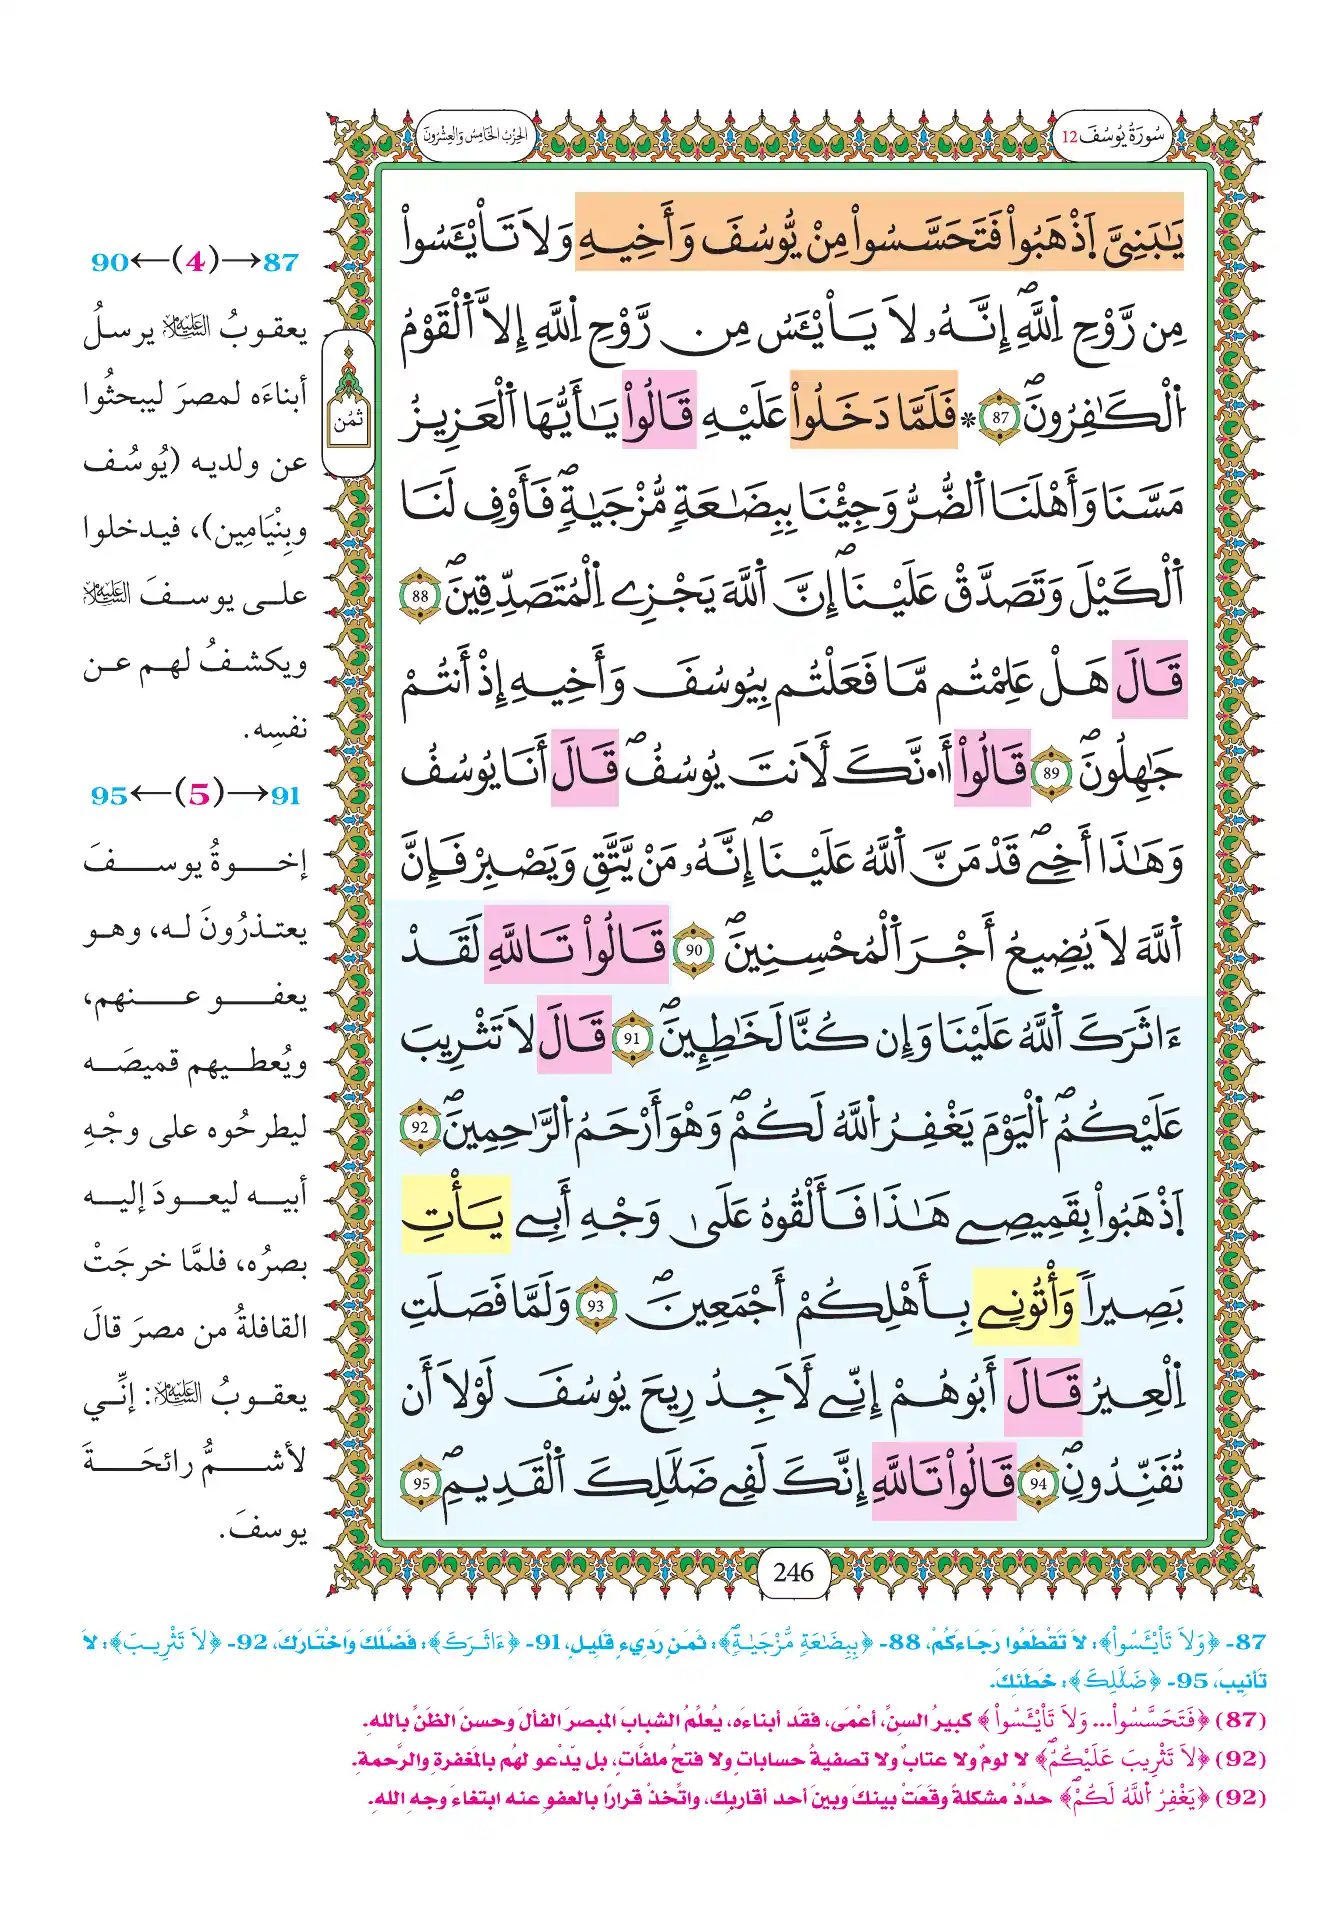 سُورَةُ يُوسُفَ 12
الحِزْبُ الخَامِسُ وَالعِشْرُونَ
يَٰبَنِيَّ اَ۪ذْهَبُواْ فَتَحَسَّسُواْ مِنْ يُّوسُفَ وَأَخِيهِ وَلَا تَاْيْـَٔسُواْ
مِن رَّوْحِ اِ۬للَّهِۖ إِنَّهُۥ لَا يَاْيْـَٔسُ مِن رَّوْحِ اِ۬للَّهِ إِلَّا اَ۬لْقَوْمُ
اُ۬لْكَٰفِرُونَۖ 87 * فَلَمَّا دَخَلُواْ عَلَيْهِ قَالُواْ يَٰأَيُّهَا اَ۬لْعَزِيزُ
مَسَّنَا وَأَهْلَنَا اَ۬لضُّرُّ وَجِئْنَا بِبِضَٰعَةٖ مُّزْجَيٰةٖۖ فَأَوْفِ لَنَا
اَ۬لْكَيْلَ وَتَصَدَّقْ عَلَيْنَاۖ إِنَّ اَ۬للَّهَ يَجْزِے اِ۬لْمُتَصَدِّقِينَۖ 88
قَالَ هَلْ عَلِمْتُم مَّا فَعَلْتُم بِيُوسُفَ وَأَخِيهِ إِذْ أَنتُمْ
جَٰهِلُونَۖ 89 قَالُواْ أَ۟نَّكَ لَأَنتَ يُوسُفُۖ قَالَ أَنَا يُوسُفُ
وَهَٰذَا أَخِےۖ قَدْ مَنَّ اَ۬للَّهُ عَلَيْنَاۖ إِنَّهُۥ مَنْ يَّتَّقِ وَيَصْبِرْ فَإِنَّ
اَ۬للَّهَ لَا يُضِيعُ أَجْرَ اَ۬لْمُحْسِنِينَۖ 90 قَالُواْ تَاللَّهِ لَقَدْ
ءَاثَرَكَ اَ۬للَّهُ عَلَيْنَا وَإِن كُنَّا لَخَٰطِـِٕينَۖ 91 قَالَ لَا تَثْرِيبَ
عَلَيْكُمُۖ اُ۬لْيَوْمَ يَغْفِرُ اُ۬للَّهُ لَكُمْۖ وَهْوَ أَرْحَمُ اُ۬لرَّٰحِمِينَۖ 92
اَ۪ذْهَبُواْ بِقَمِيصِے هَٰذَا فَأَلْقُوهُ عَلَىٰ وَجْهِ أَبِے يَأْتِ
بَصِيراٗ وَأْتُونِے بِأَهْلِكُمْ أَجْمَعِينَۖ 93 وَلَمَّا فَصَلَتِ
اِ۬لْعِيرُ قَالَ أَبُوهُمْ إِنِّے لَأَجِدُ رِيحَ يُوسُفَ لَوْلَا أَن
تُفَنِّدُونِۖ 94 قَالُواْ تَاللَّهِ إِنَّكَ لَفِے ضَلَٰلِكَ اَ۬لْقَدِيمِۖ 95
ثمُن
87→(4)←90
يعقوبُ عليه السلام يرسلُ
أبناءَه لمصرَ ليبحثُوا
عن ولديه (يُوسُف
وبِنْيَامِين)، فيدخلوا
على يوسفَ عليه السلام
ويكشفُ لهم عن
نفسِه.
91→(5)←95
إخوةُ يوسفَ
يعتذرُونَ له، وهو
يعفو عنهم،
ويُعطيهم قميصَه
ليطرحُوه على وجْهِ
أبيه ليعودَ إليه
بصرُه، فلمَّا خرجَتْ
القافلةُ من مصرَ قالَ
يعقوبُ عليه السلام: إنِّي
لأشمُّ رائحَةَ
يوسفَ.
246
87- ﴿وَلَا تَاْيْـَٔسُواْ﴾: لا تَقْطَعُوا رَجَاءَكُمْ، 88- ﴿بِبِضَٰعَةٖ مُّزْجَيٰةٖۖ﴾: ثَمَنٍ رَدِيءٍ قَلِيلٍ، 91- ﴿ءَاثَرَكَ﴾: فَضَّلَكَ وَاخْتَارَكَ، 92- ﴿لَا تَثْرِيبَ﴾: لا
تَأْنِيبَ، 95- ﴿ضَلَٰلِكَ﴾: خَطَئِكَ.
(87) ﴿فَتَحَسَّسُواْ... وَلَا تَاْيْـَٔسُواْ﴾ كبيرُ السنِّ، أعْمَى، فقدَ أبناءَه، يُعلِّمُ الشبابَ المبصرَ الفألَ وحسنَ الظنِّ باللهِ.
(92) ﴿لَا تَثْرِيبَ عَلَيْكُمُۖ﴾ لا لومٌ ولا عتابٌ ولا تصفيةُ حساباتٍ ولا فتحُ ملفَّاتٍ، بل يدْعو لهُم بالمَغفرةِ والرَّحمةِ.
(92) ﴿يَغْفِرُ اُ۬للَّهُ لَكُمْۖ﴾ حدِّدْ مشكلةً وقَعَتْ بينكَ وبينَ أحد أقاربِك، واتَّخذْ قرارًا بالعفوِ عنه ابتغاءَ وجهِ اللهِ.